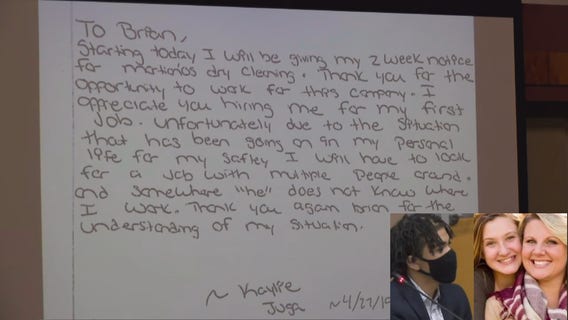 To Brian,
Starting today I will be giving my 2 week notice
for martinios dry cleaning. Thank you for the
opportunity to work for this company. I
appreciate you hiring me for my first
Job. unfortunately due to the situation
that has been going on in my personal
life for my safley I will have to look
for a Job with multiple people around.
and somewhere "he" does not know where
I work. Thank you again brian for the
understanding of my situation.
~ Kaylie
Juga ~4/27/19